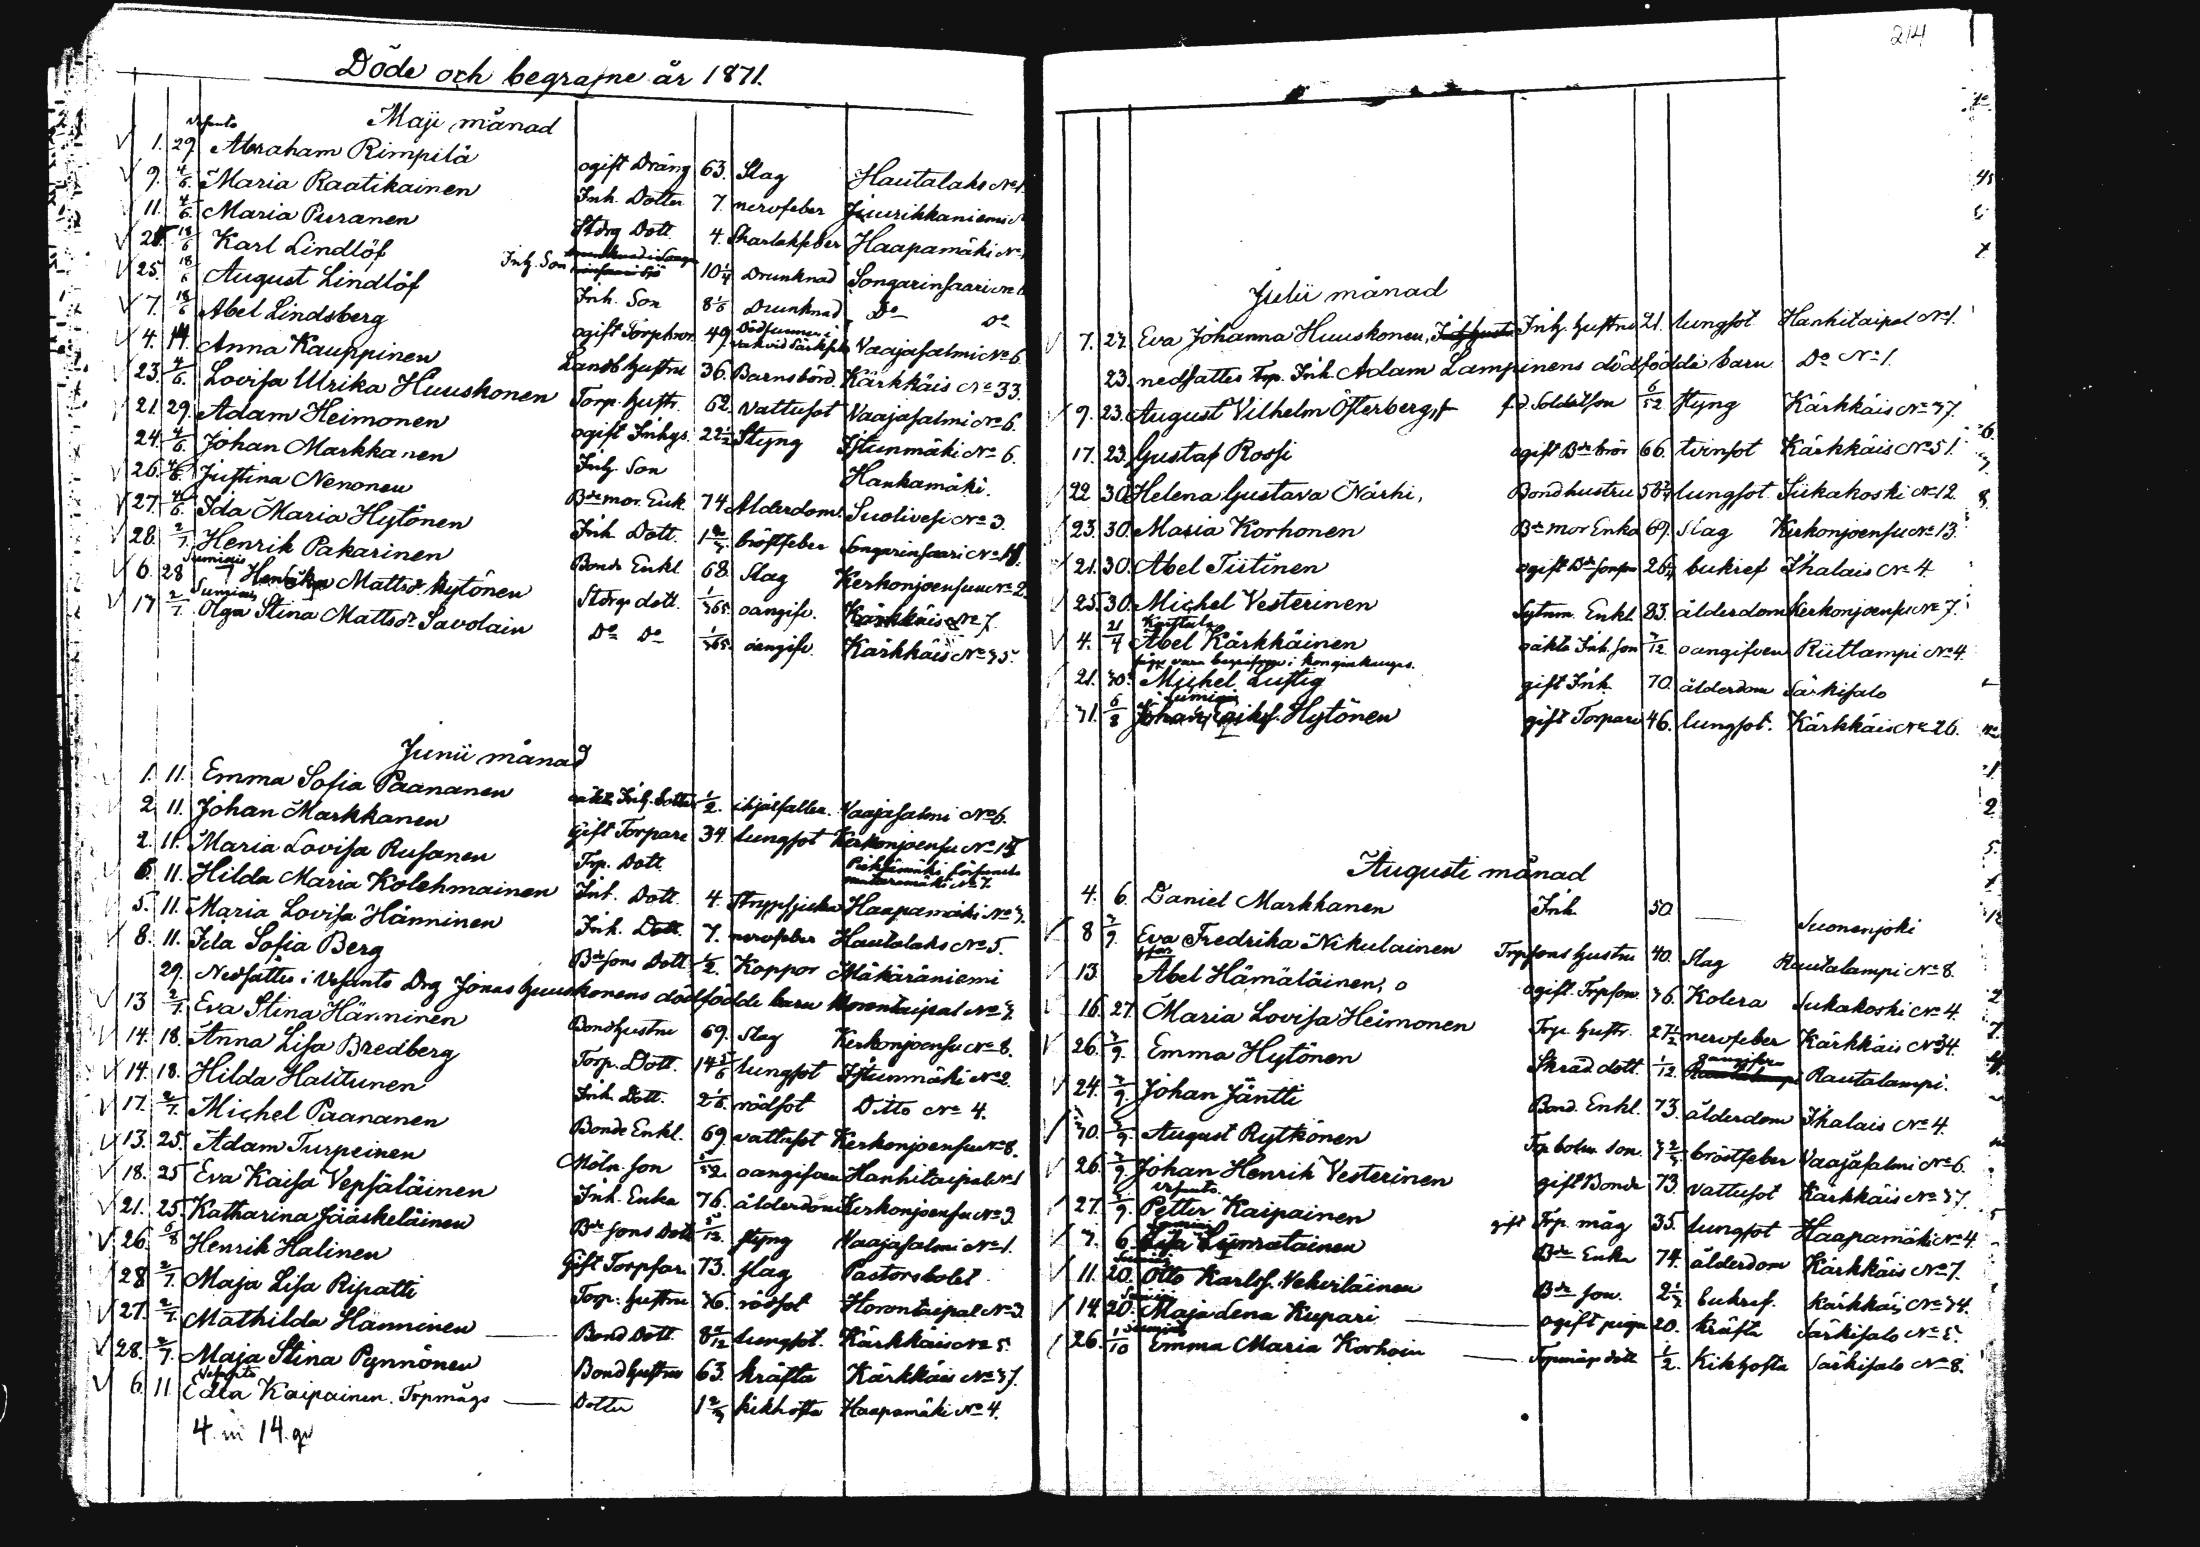 Döde och begrafne år 1871.
Maji månad
Vesanto
1. 29. Abraham Rimpilä ogift Dräng 63. Slag Hautalaks No 1.
9. 4/6. Maria Raatikainen Inh. Dotter 7. nervfeber Juurikkaniemi
11. 4/6. Maria Puranen Stdrg Dott. 4. Skarlakfeber Haapamäki No
25. 18/6 Karl Lindlöf Inh. Son 10 1/4 Drunknad Songarinsaari No
25. 18/6 August Lindlöf Inh. Son 8 1/6 Drunknad Do Do
7. 18/6 Abel Lindsberg ogift Torpkar 49. Vaajasalmi No 6
4. 14. Anna Kauppinen Landb hustru 36. Barnsbörd. Kärkkäis No 33.
23. 4/6. Lovisa Ulrika Huuskonen Torp. hustr. 62. vattusot Vaajasalmi No 6.
21. 29. Adam Heimonen ogift Inhys. 22 1/2 Styng Istunmäki No 6.
24. 4/6. Johan Markkanen Inh. Son Hankamäki.
26. 4/6. Justina Nenonen Bde mor. Enk. 74. Alderdom Suolivesi No 3.
27. 4/6. Ida Maria Hytönen Inh. Dott. 1 bröstfeber Songarinsaari No
28. 2/7. Henrik Pakarinen Bonde Enkl. 68. Slag Kerkonjoensuu No 2.
Sumiais
6. 28 Mattsdr Hytönen Stdrgs dott. 1/365. oangifv. Kärkkäis No 7.
Sumiais
17 2/7. Olga Stina Mattsdr Savolain Do Do 1/365. oangifv. Kärkkäis No 35.
Junii månad
1. 11. Emma Sofia Paananen oäkta Inh. dotter 1/2. ihjälfallen. Vaajasalmi No 6.
2. 11. Johan Markkanen Gift Torpare 34. lungsot Kerkonjoensu No
2. 11. Maria Lovisa Rusanen Trp. Dott.
6. 11. Hilda Maria Kolehmainen Inh. Dott. 4. Strypsjuka Haapamäki No 3.
5. 11. Maria Lovisa Hänninen Inh. Dott. 7. nervfeber Hautalaks No 5.
8. 11. Ida Sofia Berg Bde sons Dott. 1/2. Koppor Mäkäräniemi
29. Nedsattes i Vesanto Drg Jonas Huuskonens dödfödde barn Horontaipal No 3.
13 2/7. Eva Stina Hänninen Bondhustru 69. Slag Kerkonjoensu No 8.
14. 18. Anna Lisa Bredberg Torp. Dott. 14 5/6 lungsot Istunmäki No 2.
14. 18. Hilda Halttunen Inh. Dott. 2 1/6. rödsot Ditto No 4.
17. 2/7. Michel Paananen Bonde Enkl. 69. vattusot Kerkonjoensuu No 8.
13. 25. Adam Turpeinen Möln. son oangifven Hanhitaipale No 1
18. 25 Eva Kaisa Vepsäläinen Inh. Enka 76. ålderdom Kerkonjoensu No 3.
21. 25. Katharina Jääskeläinen Bde sons Dott. 5/12. styng Vaajasalmi No 1.
26. 6/8 Henrik Halinen Gift Torpfar. 73. slag Pastorsbolet
28. 2/7. Maja Lisa Ripatti Torp. hustru 36. rödsot Horontaipal No 3.
27. 2/7. Mathilda Hänninen Bond Dott. lungsot. Kärkkäis No 5.
28. 2/7. Maja Stina Pynnönen Bondhustru 63. kräfta Kärkkäis No 37.
Vesanto
6. 11 Edla Kaipainen. Torpmågs Dotter 1 2/3 kikhosta Haapamäki No 4.
4. m 14. qv
214
Julii månad
7. 23. Eva Johanna Huuskonen, Inh. hustru 21. lungsot Hanhitaipal No 1.
23. nedsattes Trp. Inh. Adam Lampinens dödfödda barn Do No 1.
9. 23. August Vilhelm Österberg f.d. Soldatson 6/52 styng Kärkkäis No 37.
17. 23. Gustaf Rossi ogift Bde bror 66. tvinsot Kärkkäis No 51.
22 30. Helena Gustava Närhi, Bondhustru lungsot Siikakoski No 12.
23. 30. Maria Korhonen Bde mor Enka 69. Slag Kerkonjoensu No 13.
21. 30. Abel Tiitinen ogift Bde son 26 bukref Ihalais No 4.
25. 30. Michel Vesterinen Sytnm. Enkl. 83. ålderdom Kerkonjoensu No 7.
Karttula
4. Abel Kärkkäinen oäkta Inh. son oangifven Riitlampi No 4.
säges vara begrafven i Konginkangas.
21. 30. Michel Lustig gift Inh. 70. ålderdom Särkisalo
Sumiais
31. 6/8 Johan Eriksf. Hytönen gift Torpare 46. lungsot. Kärkkäis No 26.
Augusti månad
4. 6. Daniel Markkanen Inh. 50. — Suonenjoki
8 3/9. Eva Fredrika Nikulainen Trpsons hustru 40. Slag Rautalampi No 8.
13 Abel Hämäläinen, o ogift. Trpson. 36. Kolera Siikakoski No 4.
16. 27. Maria Lovisa Heimonen Trp. hustr. 27 1/2 nervfeber Kärkkäis No 34.
26. 3/9. Emma Hytönen Skräd dott. 1/12. oangifven Rautalampi.
24. 3/9. Johan Jäntti Bond. Enkl. 73. ålderdom Ihalais No 4.
30. 3/9. August Rytkönen son. 3 2/3 bröstfeber Vaajasalmi No 6.
26. 3/9 Johan Henrik Vesterinen gift Bonde 73. vattusot Kärkkäis No 37.
Vesanto
27. 3/9. Petter Kaipainen gift Trp. måg 35. lungsot Haapamäki No 4.
Sumiais
7. 6. Lisa Liimatainen Bde Enka 74. ålderdom Kärkkäis No 7.
Sumiais
11. 20. Otto Karlsf. Vekviläinen Bde son. bukref. Kärkkäis No 34.
Sumiais
14. 20. Maja Lena Kupari — ogift piga 20. kräfta Särkisalo No 5.
Sumiais
26. 1/10 Emma Maria Korhoin — Torpmågs dott 1/2. Kikhosta Särkisalo No 8.